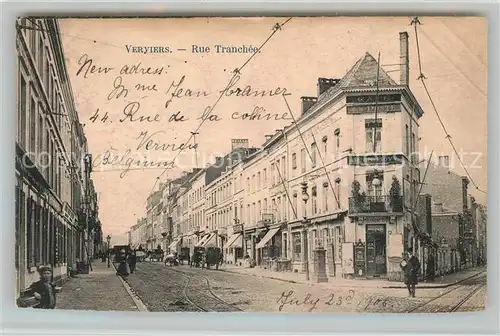 VERVIERS. — Rue Tranchée.
New address:
Mme Jean Cramer
44. Rue de la colline
Verviers
Belgium
July 23rd 1906